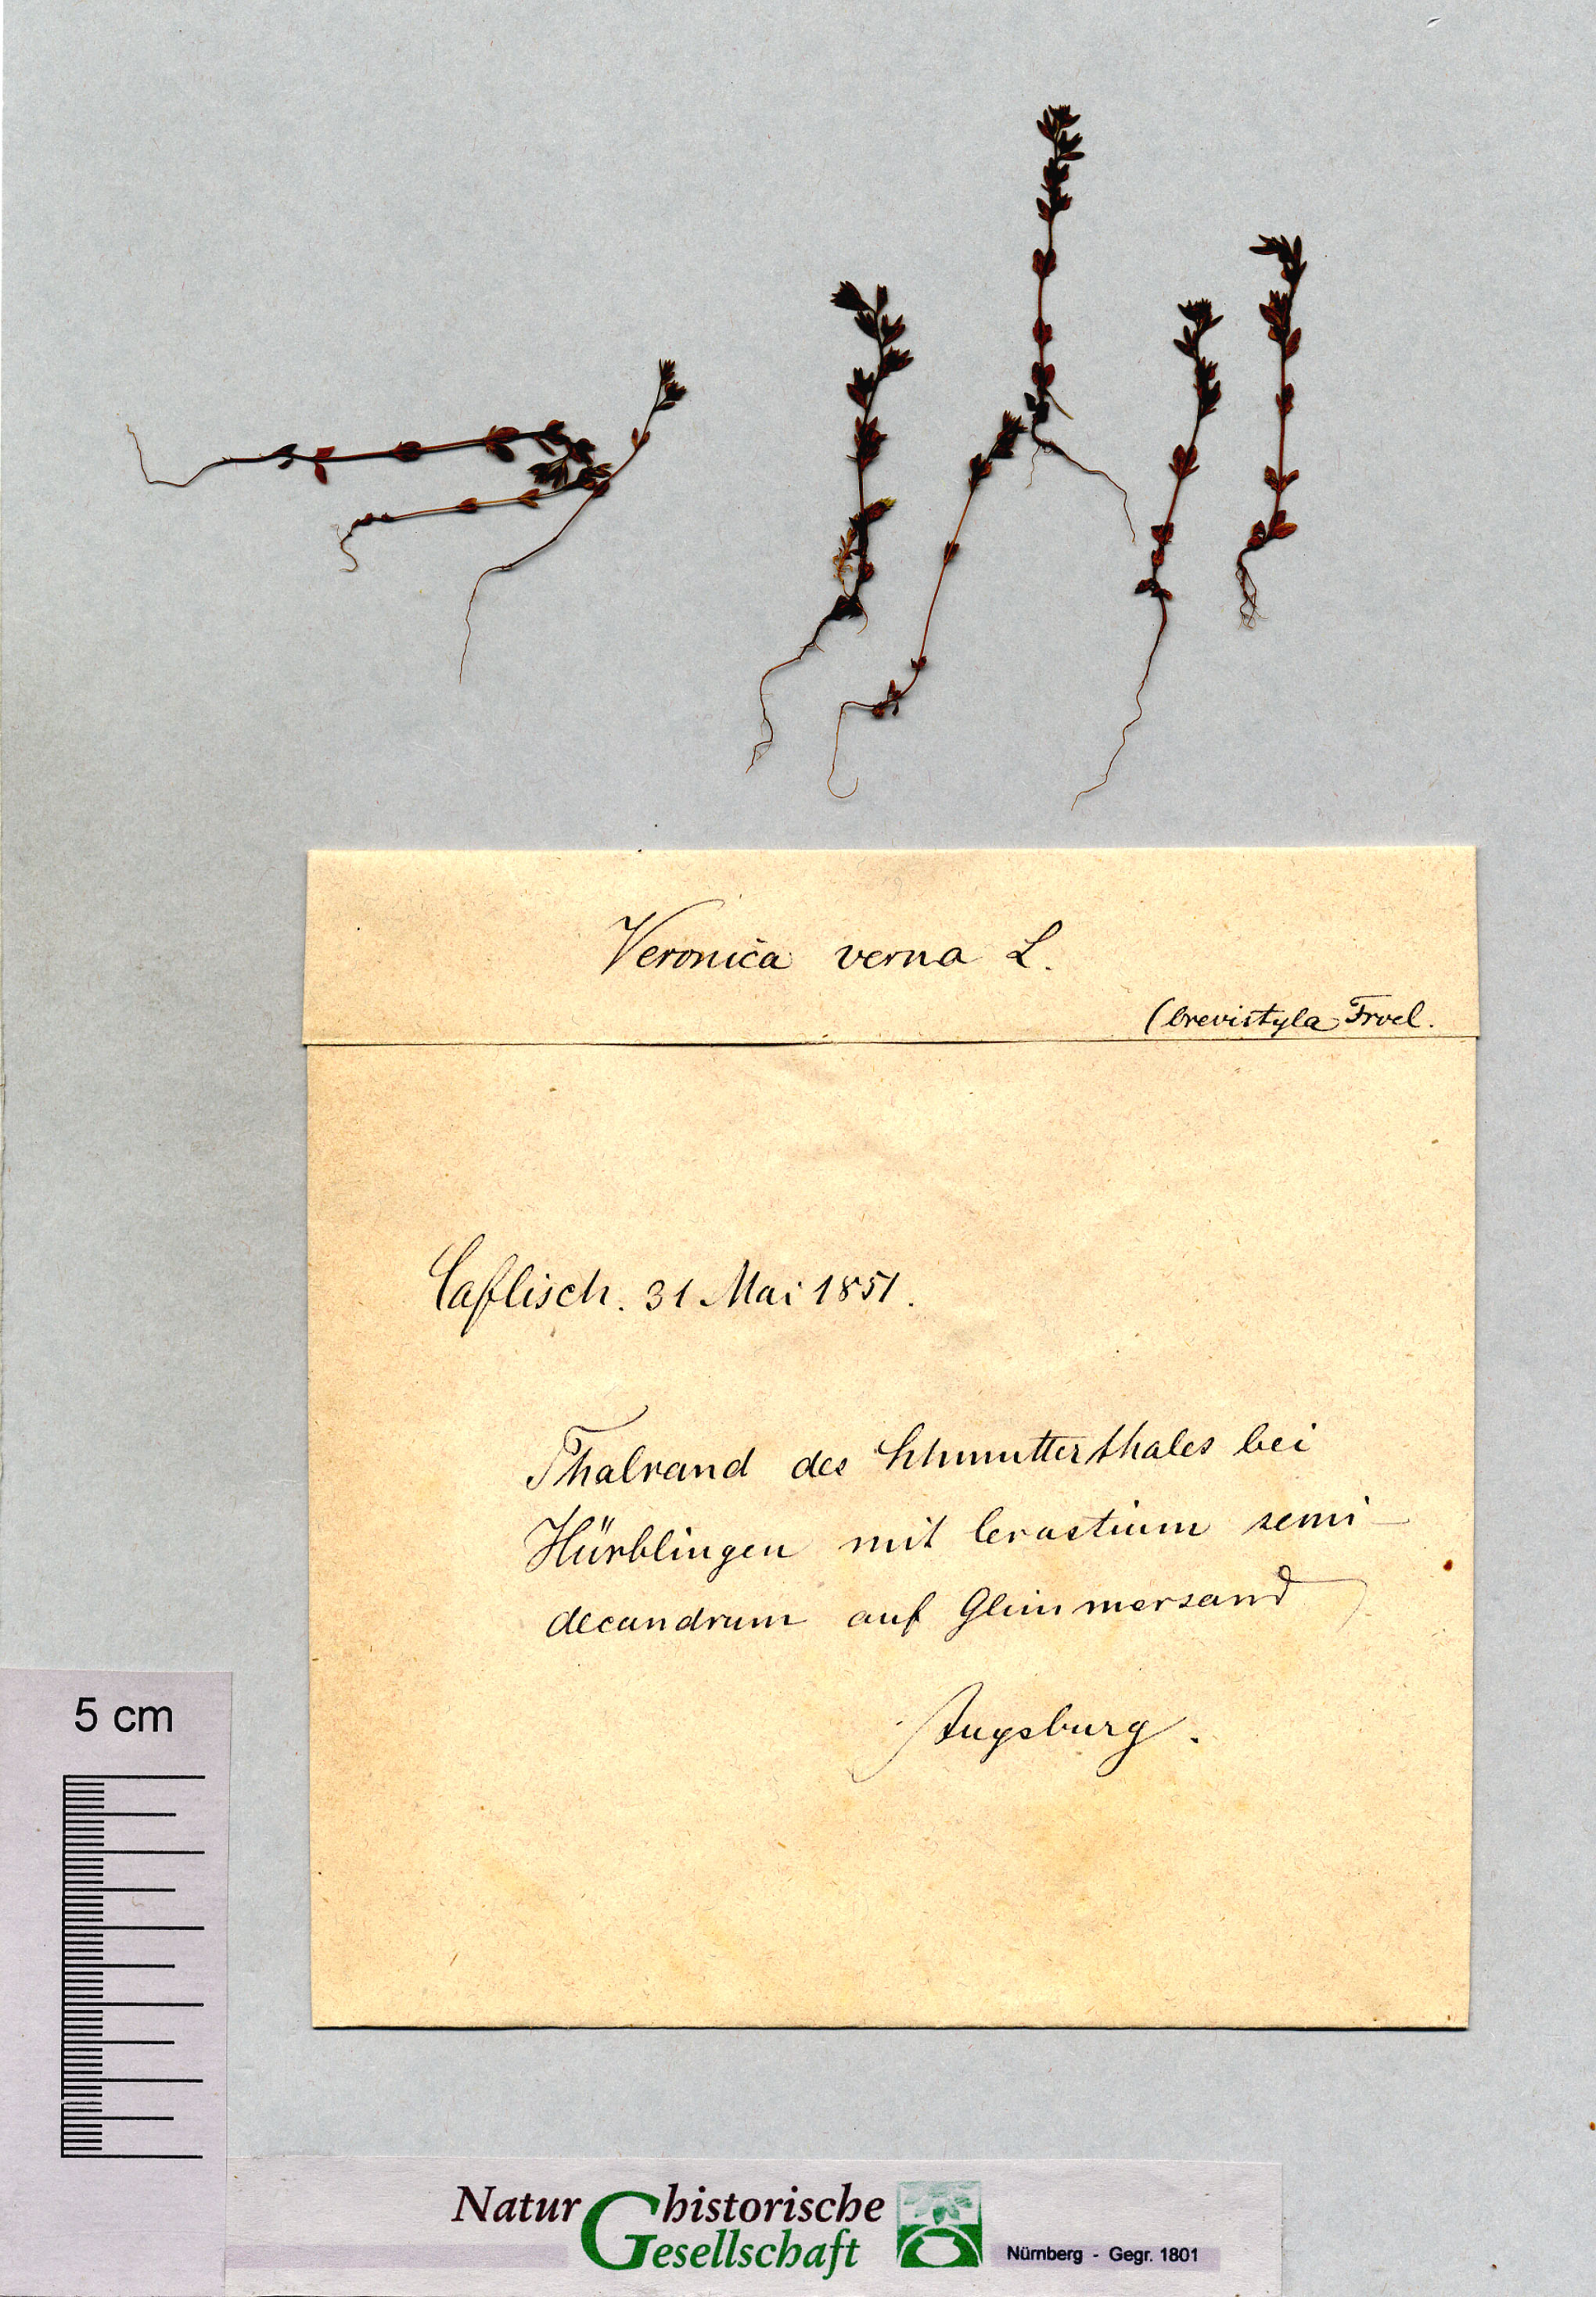 Veronica verna L.
(brevistyla Froel.
Caflisch. 31 Mai 1851.
Thalrand des Schmutterthales bei
Hürblingen mit Cerastium semi-
decandrum auf Glimmersand
Augsburg.
5 cm
Naturhistorische
Gesellschaft
Nürnberg - Gegr. 1801